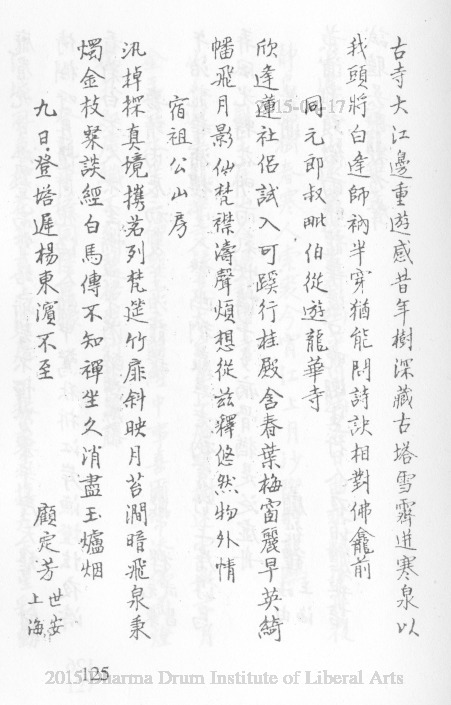 古寺大江邊重遊感昔年樹深藏古塔雪霽迸寒泉以
我頭將白逢師衲半穿猶能問詩訣相對佛龕前
同元郎叔毗伯從遊龍華寺
欣逢蓮社侶試入可蹊行桂殿含春葉梅窗麗早英綺
幡飛月影仙梵襟濤聲煩想從茲釋悠然物外情
宿祖公山房
汎掉探真境攜茗列梵筵竹扉斜映月苔澗暗飛泉秉
燭金枝粲談經白馬傳不知禪坐久消盡玉爐烟
九日登塔遲楊東濱不至
顧定芳 世安 上海
125
2015 Dharma Drum Institute of Liberal Arts